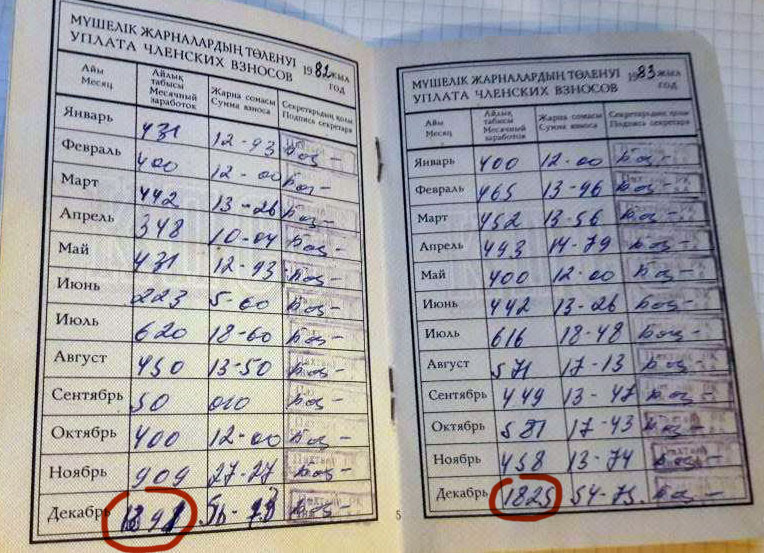 МҮШЕЛІК ЖАРНАЛАРДЫҢ ТӨЛЕНУІ
УПЛАТА ЧЛЕНСКИХ ВЗНОСОВ
1982 ЖЫЛ
ГОД
Айы
Месяц
Айлық
табысы
Месячный
заработок
Жарна сомасы
Сумма взноса
Секретардың қолы
Подпись секретаря
Январь 431 12-93
Февраль 400 12-00
Март 442 13-26
Апрель 348 10-04
Май 431 12-93
Июнь 223 5-60
Июль 620 18-60
Август 450 13-50
Сентябрь 50 010
Октябрь 400 12-00
Ноябрь 909 27-27
Декабрь 56-73
МҮШЕЛІК ЖАРНАЛАРДЫҢ ТӨЛЕНУІ
УПЛАТА ЧЛЕНСКИХ ВЗНОСОВ
1983 ЖЫЛ
ГОД
Айы
Месяц
Айлық
табысы
Месячный
заработок
Жарна сомасы
Сумма взноса
Секретардың қолы
Подпись секретаря
Январь 400 12-00
Февраль 465 13-96
Март 452 13-56
Апрель 493 14-79
Май 400 12-00
Июнь 442 13-26
Июль 616 18-48
Август 571 17-13
Сентябрь 449 13-47
Октябрь 581 17-43
Ноябрь 458 13-74
Декабрь 1825 54-75
5